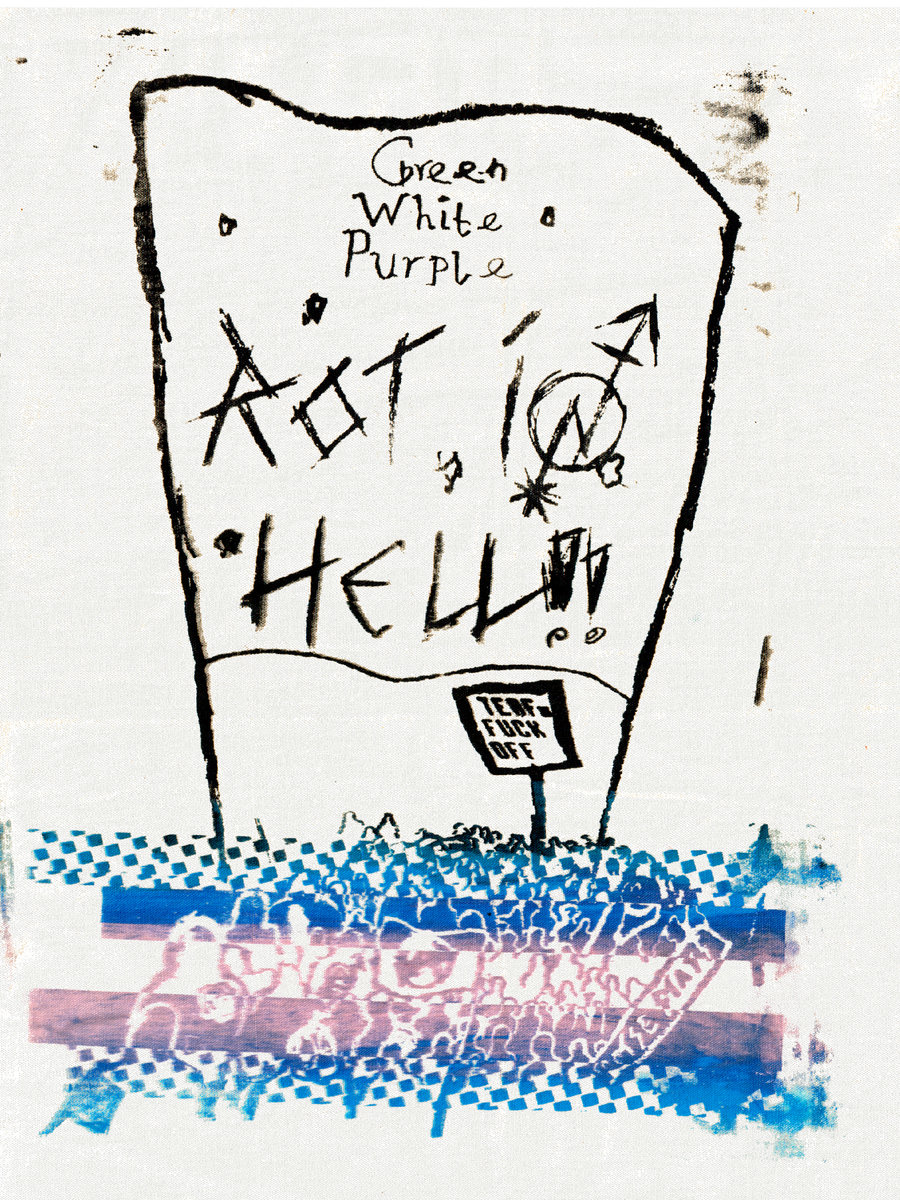 Green
White
Purple
ROT iN
HELL!!
TERF
FUCK
OFF